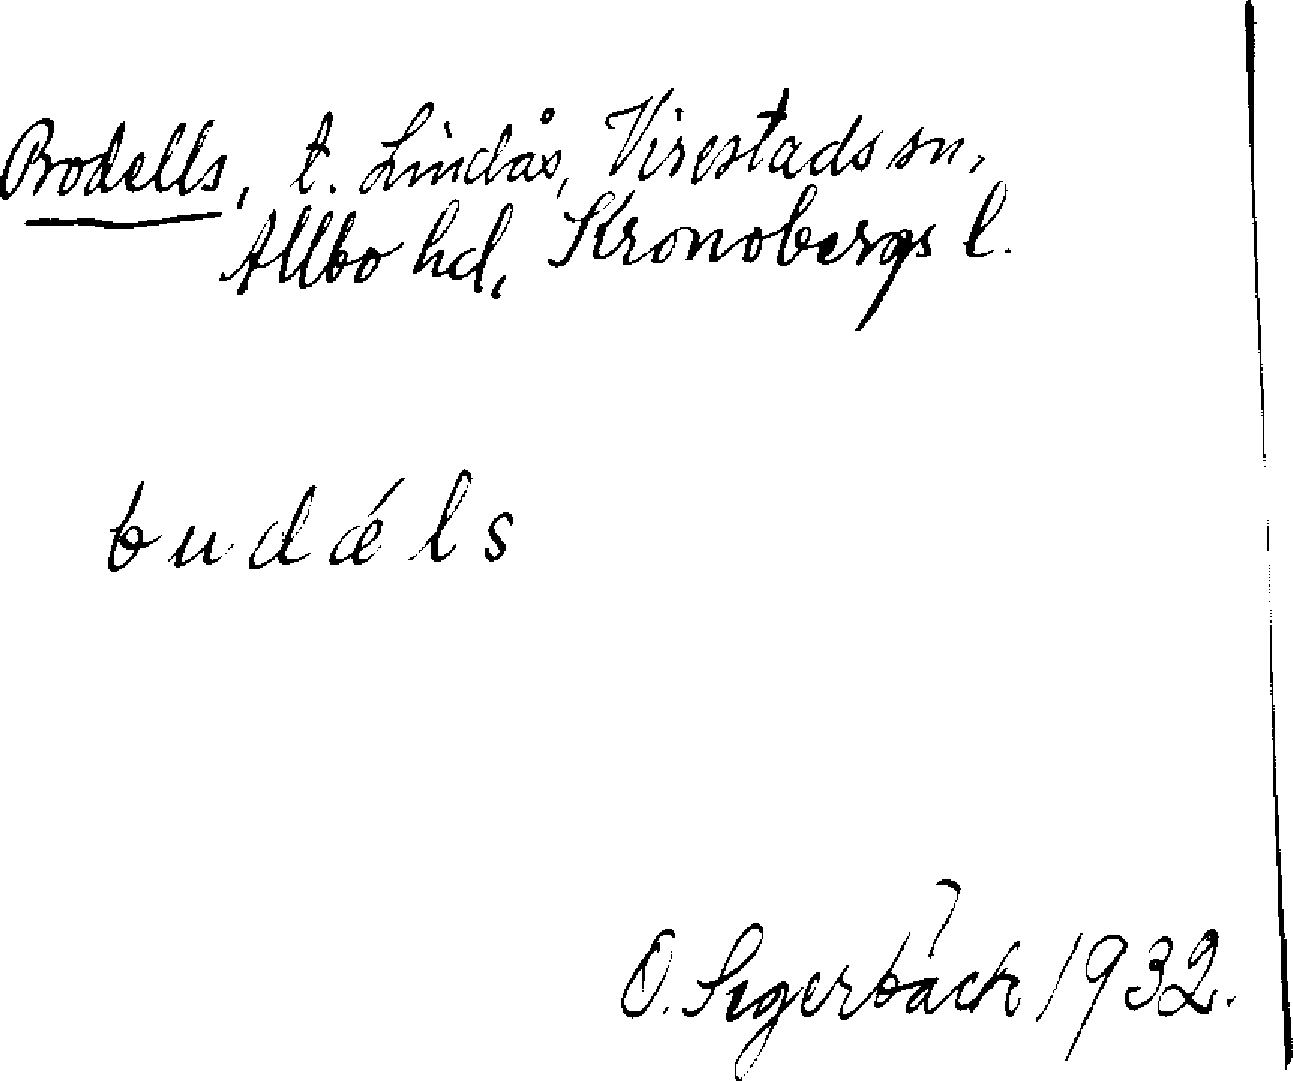 Bodells, t. Lindås, Virestads sn,
Allbo hd, Kronobergs l.
budǽls
O. Segerbäck 1932.